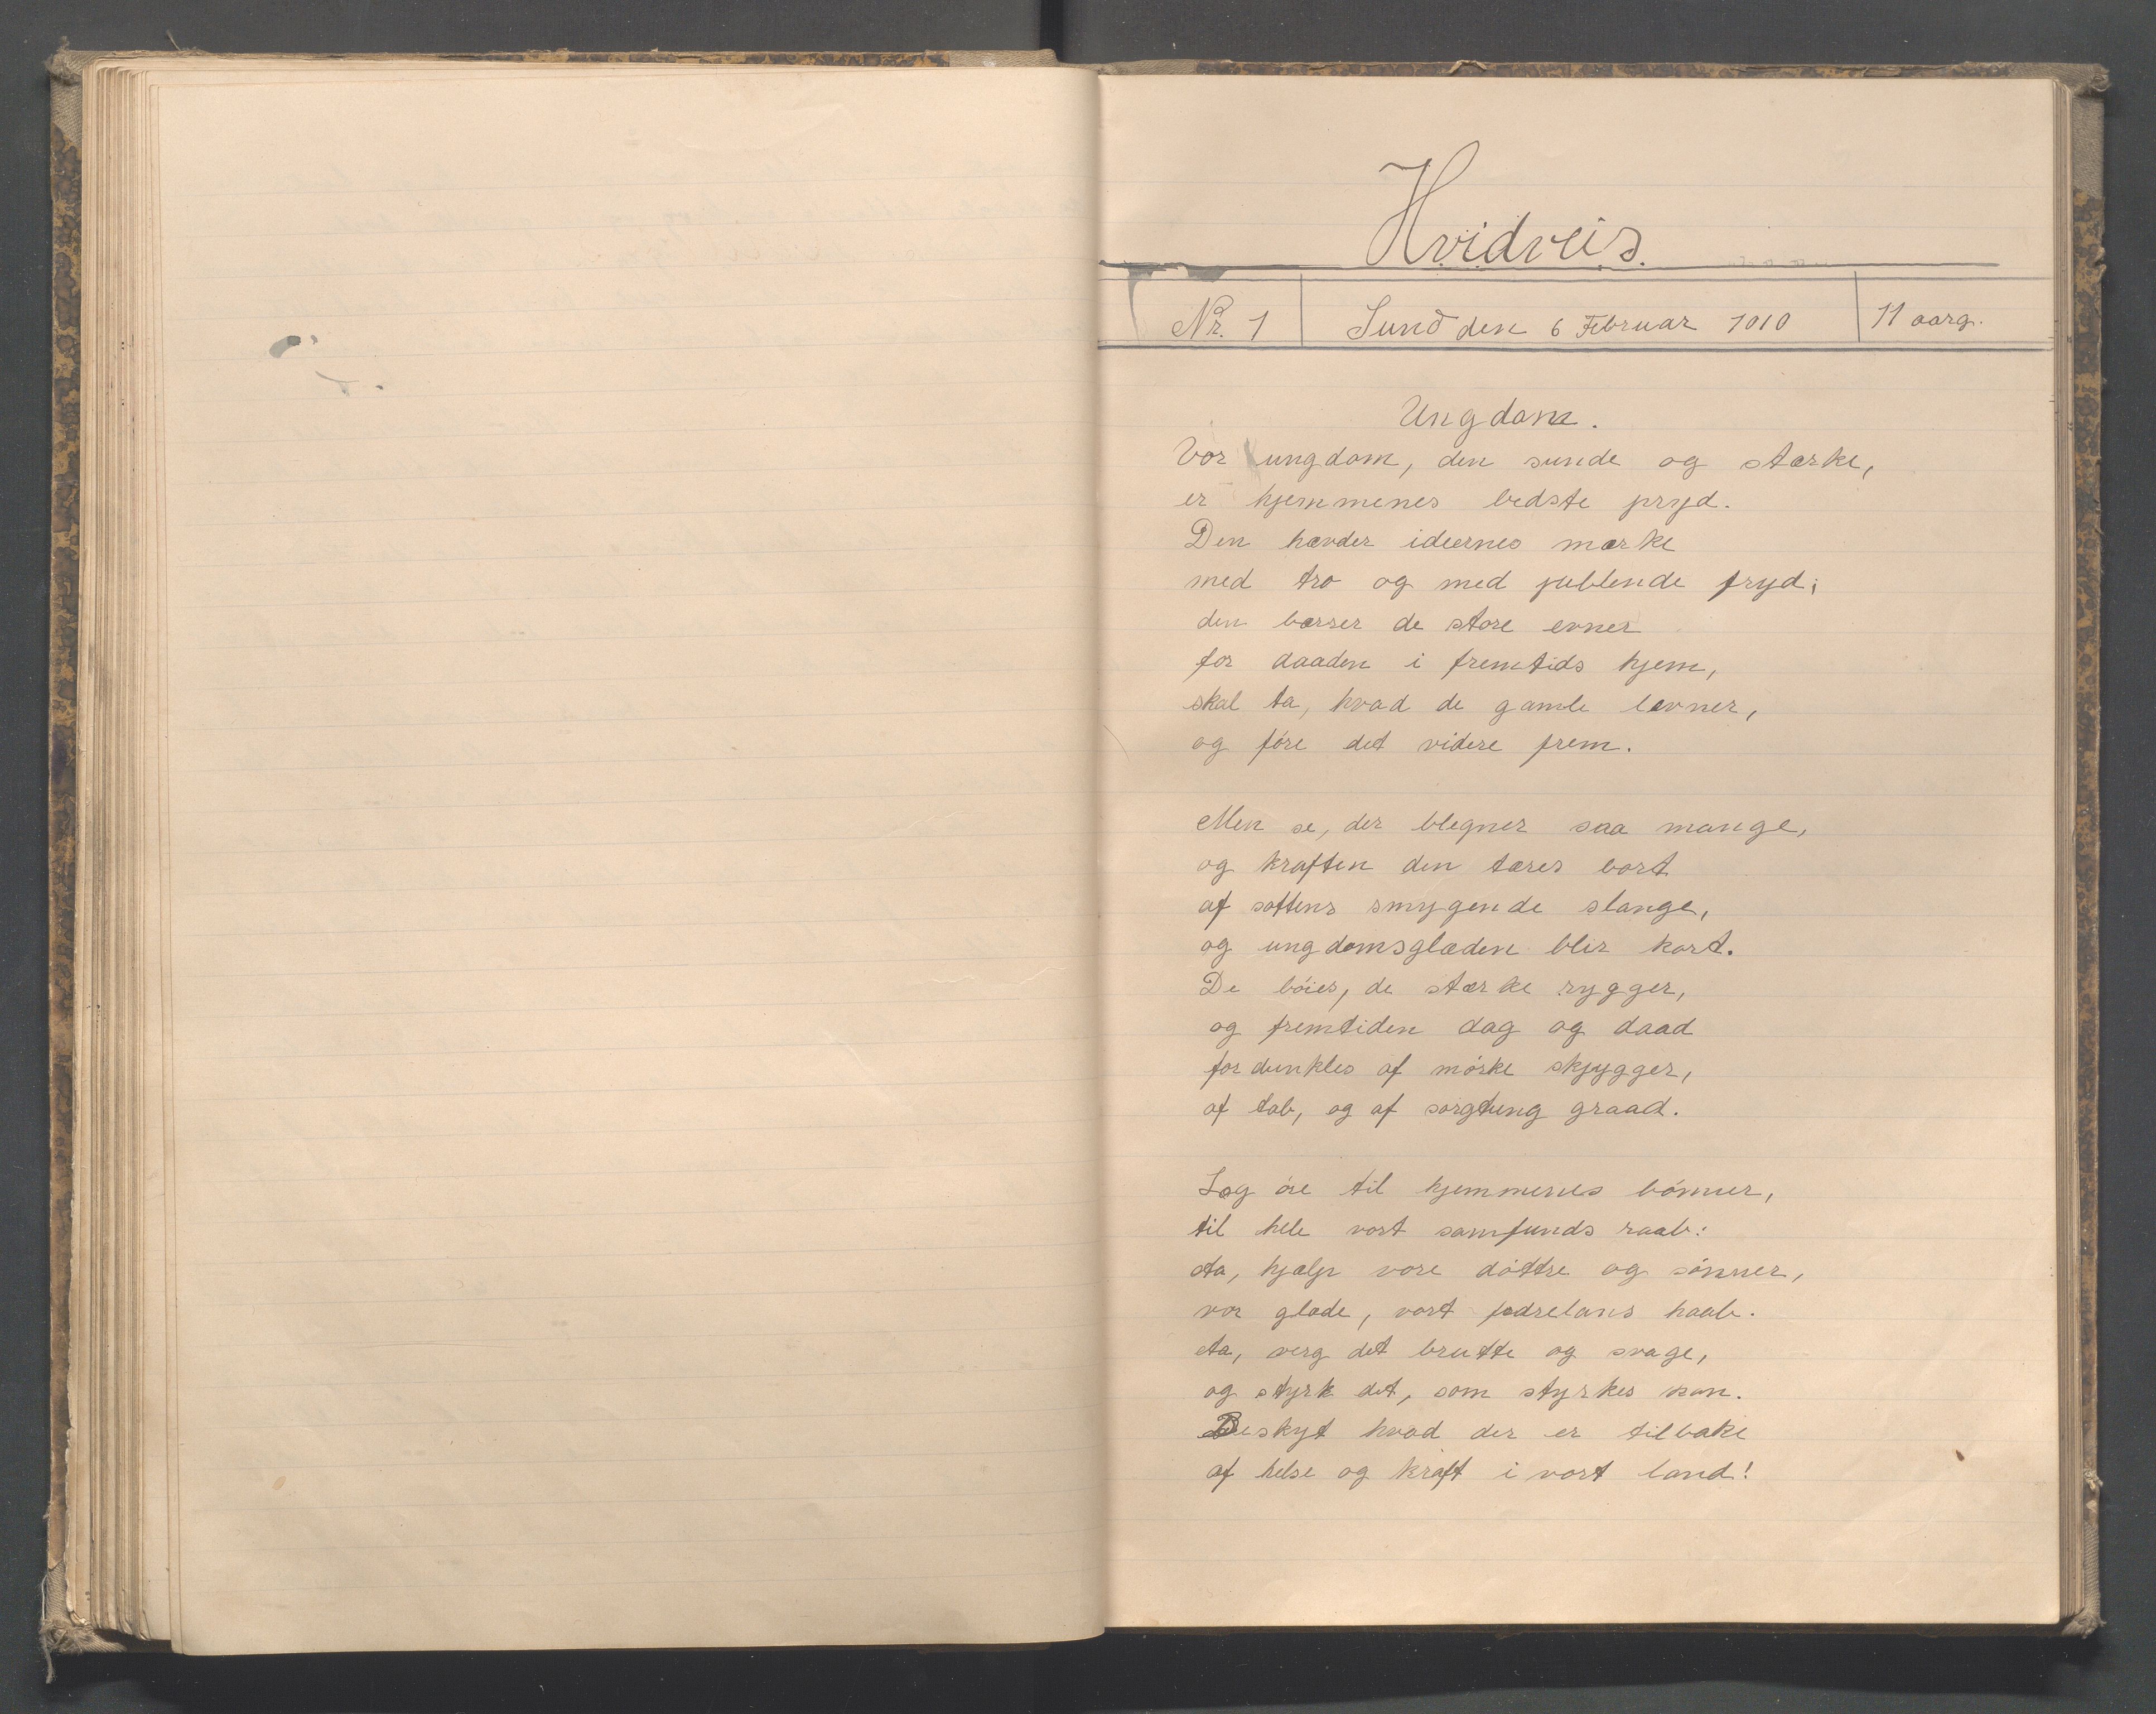 Hvidveis.
Nr. 1 Sund den 6 Februar 1910 11 aarg.
Ungdom.
Vor ungdom, den sunde og stærke,
er hjemmenes bedste pryd.
Den hævder ideernes mærke
med tro og med jublende fryd;
den bærer de store evner
for daaden i fremtids hjem,
skal ta, hvad de gamle levner,
og före det videre frem.
Men se, der blegner saa mange,
og kraften den tæres bort
af sottens smygende slange,
og ungdomsglæden blir kort.
De böies, de stærke rygger,
og fremtiden dag og daad
fordunkles af mörke skygger,
af tab, og af sorgtung graad.
Læg öre til hjemmenes bönner,
til hele vort samfunds raab:
sta, hjælp vore döttre og sönner,
vor glæde, vort fædrelans haab.
sta, verg det brutte og svage,
og styrk det, som styrkes kan.
Beskyt hvad der er tilbake
af helse og kraft i vort land!